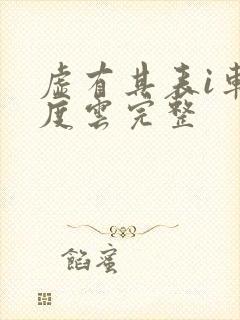 虛有其表i車
度雲完整
餡蜜